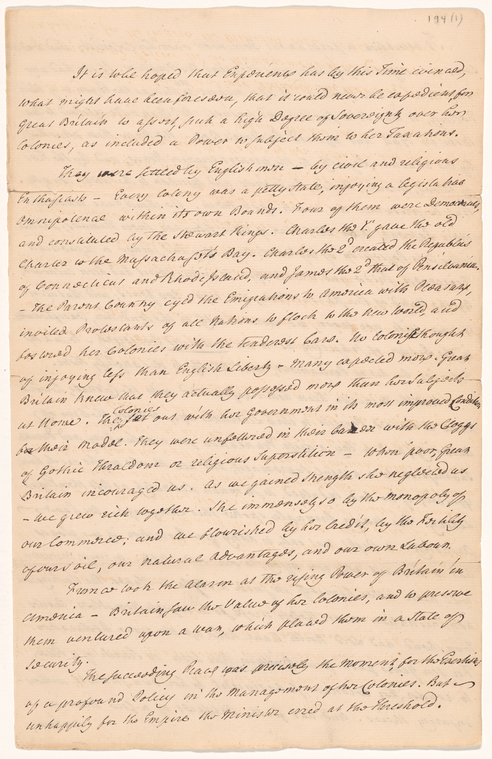 194 (1)
It is to be hoped that Experience has by this Time evinced,
what might have been foreseen, that it could never be expedient for
Great Britain to assert such a high Degree of Sovereignty over her
Colonies, as included a Power to subject them to her Taxations.
They were settled by Englishmen — by civil and religious
Enthusiasts — Every Colony was a petty State, injoying a legislative
Omnipotence within its own Bounds. Four of them were Democracies,
and constituted by the Stewart Kings. Charles the 1st gave the old
Charter to the Massachusets Bay. Charles the 2d created the Republics
of Connecticut and Rhode Island, and James the 2d that of Pensilvania.
— The Parent Country eyed the Emigrations to America with Pleasure,
invited Protestants of all Nations to flock to the new World, and
fostered her Colonies with the tenderest Care. No Colonist thought
of injoying less than English Liberty — Many expected more. Great
Britain knew that they actually possessed more than her Subjects
at Home. The Colonies set out with her Government in its most improved Condition
for their Model. They were unfettered in their with the Cloggs
of Gothic Thraldom or religious Superstition — When poor, Great
Britain incouraged us. As we gained Strength she neglected us
— we grew rich together. She immensely so by the monopoly of
our Commerce; and we flourished by her Credit, by the Fertility
of our Soil, our natural Advantages, and our own Labour.
France took the Alarm at the rising Power of Britain in
America — Britain saw the Value of her Colonies, and to preserve
them ventured upon a War, which placed them in a State of
Security.
The succeeding Peace was precisely the Moment, for the Exertion
of a profound Policy in the Management of her Colonies. But
unhappily for the Empire the Minister erred at the Threshold.